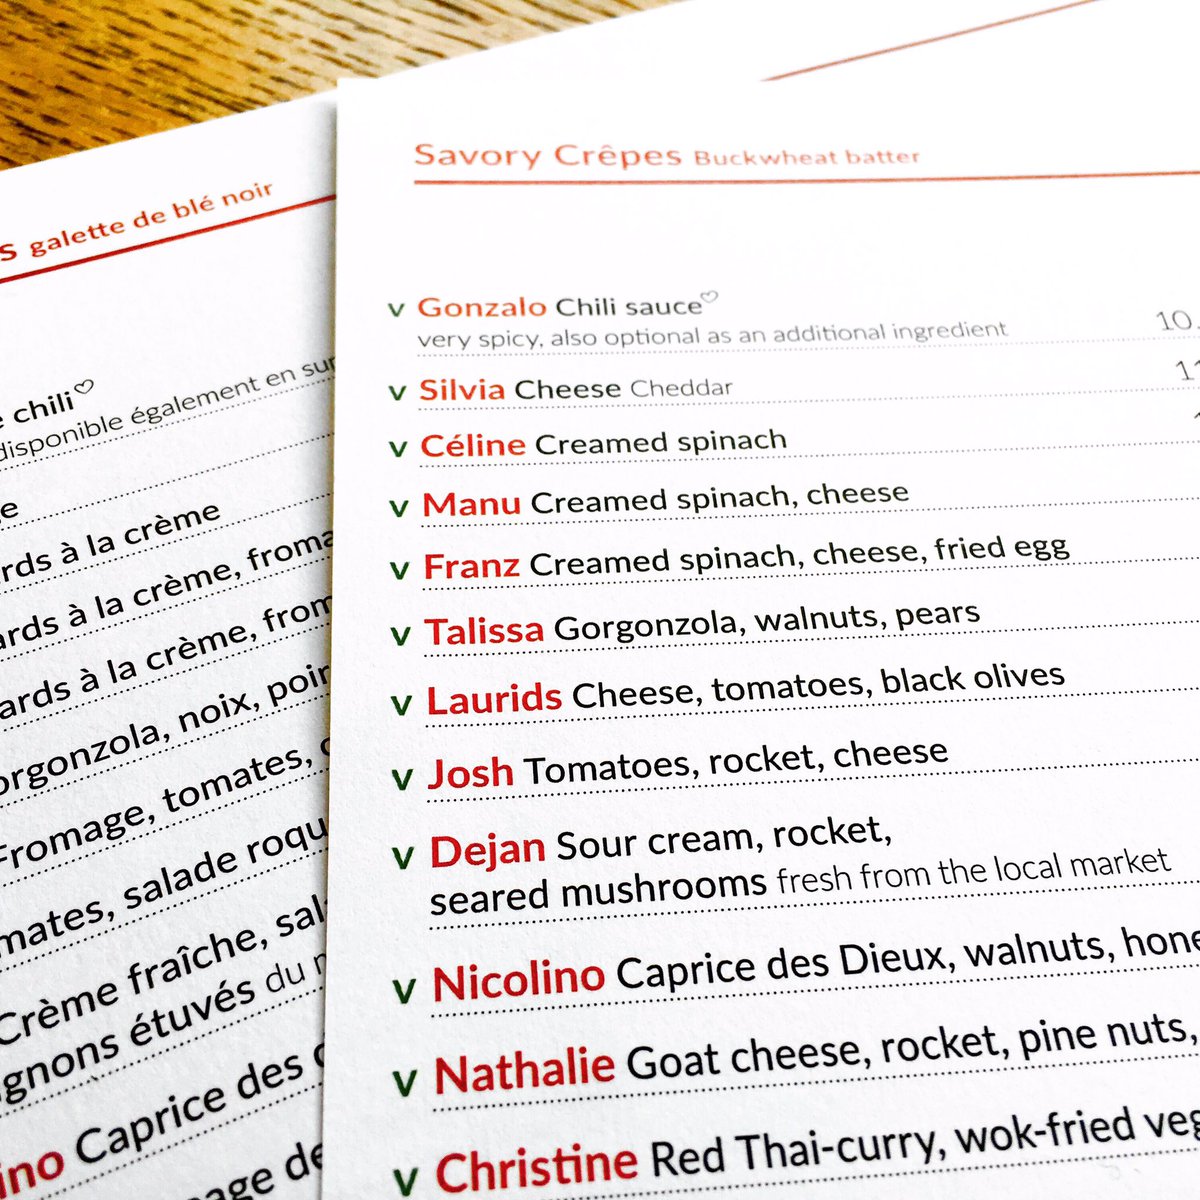 s galette de blé noir
chili♡
disponible également en sur
rds à la crème
ards à la crème, froma
ards à la crème, from
orgonzola, noix, poir
Fromage, tomates,
mates, salade roqu
Crème fraîche, sala
gnons étuvés du
ino Caprice des
age de
Savory Crêpes Buckwheat batter
v Gonzalo Chili sauce♡
very spicy, also optional as an additional ingredient 10,
v Silvia Cheese Cheddar 11
v Céline Creamed spinach
v Manu Creamed spinach, cheese
v Franz Creamed spinach, cheese, fried egg
v Talissa Gorgonzola, walnuts, pears
v Laurids Cheese, tomatoes, black olives
v Josh Tomatoes, rocket, cheese
v Dejan Sour cream, rocket,
seared mushrooms fresh from the local market
v Nicolino Caprice des Dieux, walnuts, hone
v Nathalie Goat cheese, rocket, pine nuts,
v Christine Red Thai-curry, wok-fried veg